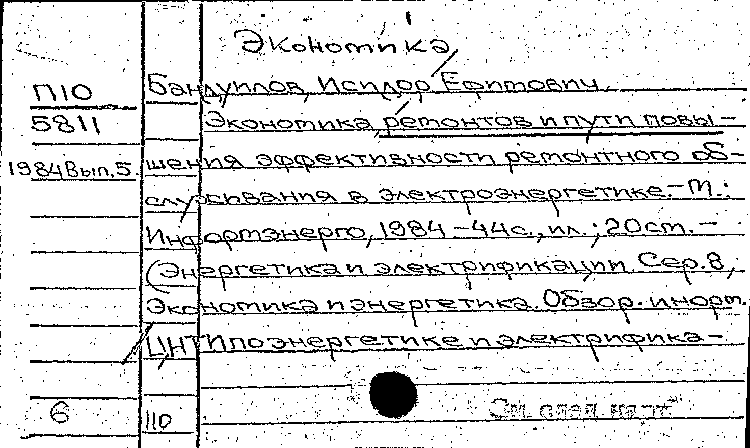 Экономика
П10 Бандуилов, Исидор Ефимович.
5811 Экономика ремонтов и пути повы-
1984 Вып.5. шения эффективности ремонтного об-
служивания в электроэнергетике.-М.:
Информэнерго, 1984 -44с., ил.; 20см. -
(Энергетика и электрификации. Сер.8,
Экономика и энергетика. Обзор. информ.
ЦНТИ по энергетике и электрифика-
6 110 См. след. к-т